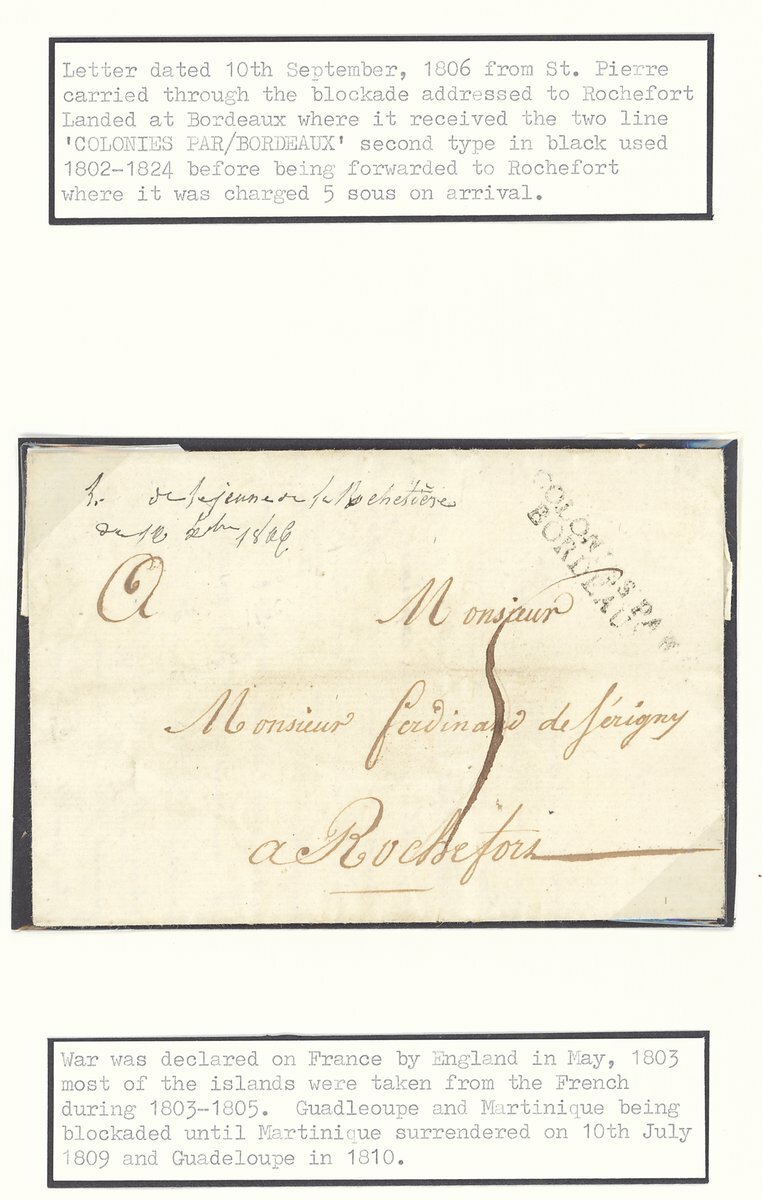 Letter dated 10th September, 1806 from St. Pierre
carried through the blockade addressed to Rochefort
Landed at Bordeaux where it received the two line
'COLONIES PAR/BORDEAUX' second type in black used
1802-1824 before being forwarded to Rochefort
where it was charged 5 sous on arrival.
de Lejeune de la Rochetière
1806
COLONIES PAR
BORDEAUX
A Monsieur
Monsieur ferdinand de Sérigny
5
a Rochefort
War was declared on France by England in May, 1803
most of the islands were taken from the French
during 1803-1805. Guadleoupe and Martinique being
blockaded until Martinique surrendered on 10th July
1809 and Guadeloupe in 1810.